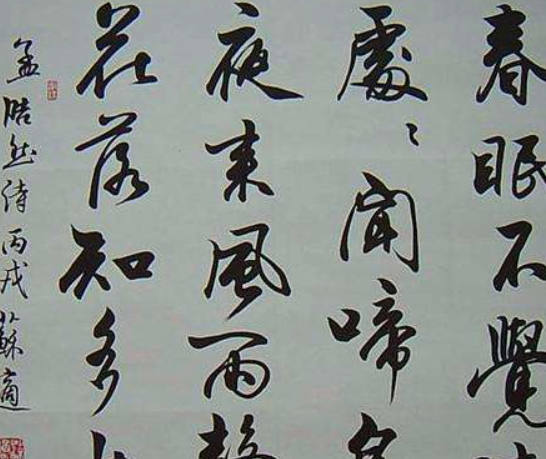 春眠不覺
處〻聞啼
夜来風雨聲
花落知多少
孟浩然詩丙戌蘇適